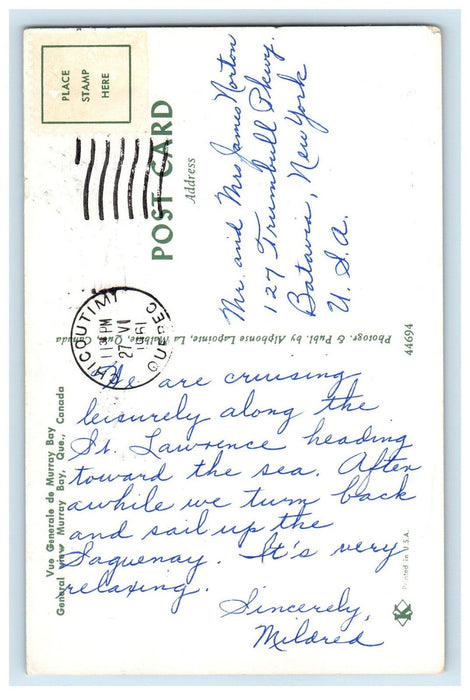 PLACE
STAMP
HERE
POST CARD
Address
Mr. and Mrs James Norton
127 Trumbull Pkwy.
Batavia, New York
U.S.A.
CHICOUTIMI
PM
27 VI
1961
QUEBEC
Photogr. & Publ. by Alphonse Lapointe, La Malbaie, Que., Canada
44694
Vue Generale de Murray Bay
General view Murray Bay, Que., Canada
We are cruising
leisurely along the
St. Lawrence heading
toward the sea. After
awhile we turn back
and sail up the
Saguenay. It's very
relaxing.
Sincerely,
Mildred
K
Printed in U.S.A.